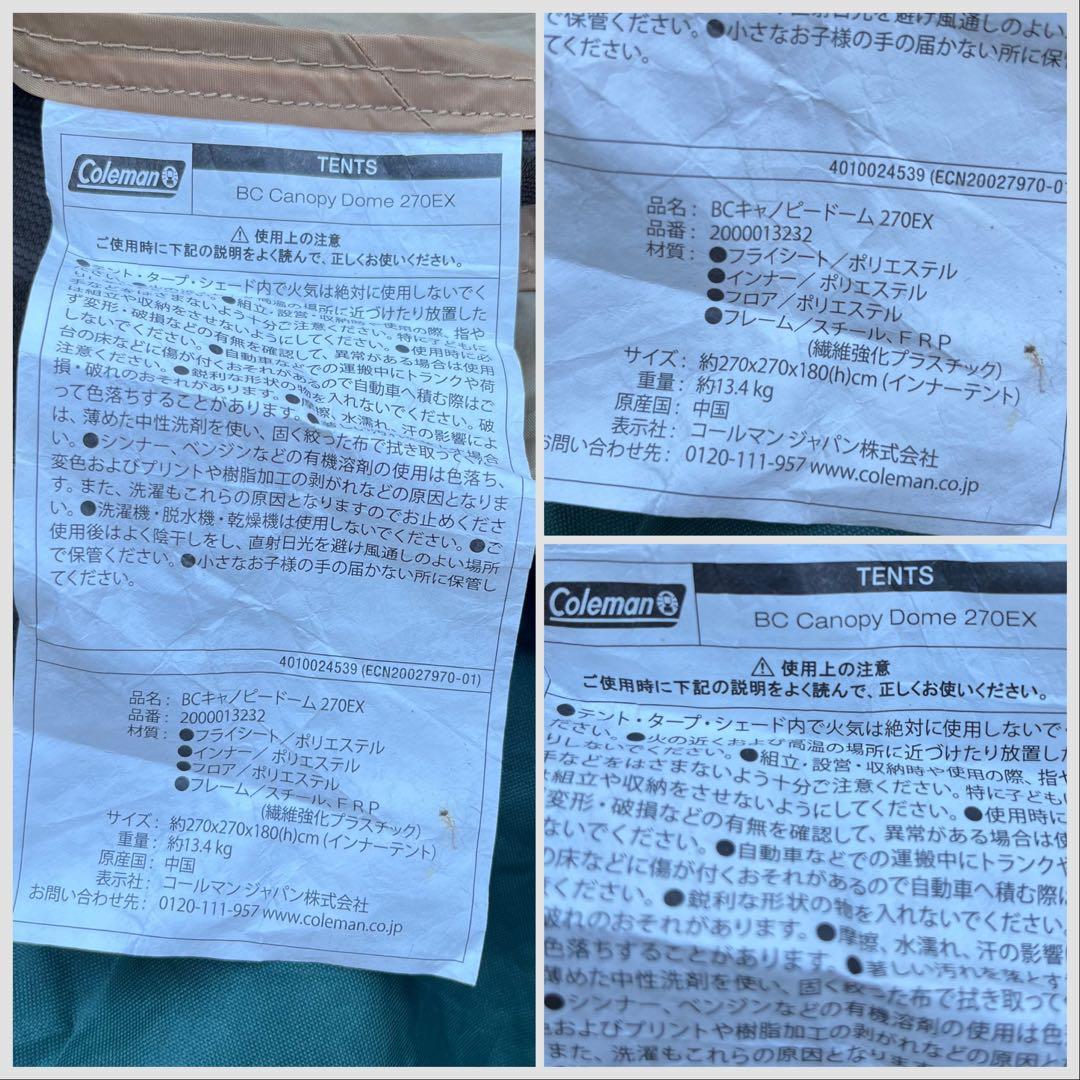 Coleman
TENTS
BC Canopy Dome 270EX
⚠ 使用上の注意
ご使用時に下記の説明をよく読んで、正しくお使いください。
●テント・タープ・シェード内で火気は絶対に使用しないでく
●組立・設営・収納時や使用の際、指や
手などをはさまないよう十分ご注意ください。特に子どもに
は組立や収納をさせないようにしてください。●使用時に必
ず変形・破損などの有無を確認して、異常がある場合は使用
しないでください。●自動車などでの運搬中にトランクや荷
台の床などに傷が付くおそれがあるので自動車へ積む際はご
注意ください。●鋭利な形状の物を入れないでください。破
損・破れのおそれがあります。●摩擦、水濡れ、汗の影響によ
って色落ちすることがあります。
は、薄めた中性洗剤を使い、固く絞った布で拭き取って
い。●シンナー、ベンジンなどの有機溶剤の使用は色落ち、
変色およびプリントや樹脂加工の剥がれなどの原因となりま
す。また、洗濯もこれらの原因となりますのでお止めくださ
い。●洗濯機・脱水機・乾燥機は使用しないでください。●ご
使用後はよく陰干しをし、直射日光を避け風通しのよい場所
で保管ください。●小さなお子様の手の届かない所に保管し
てください。
4010024539 (ECN20027970-01)
品名： BCキャノピードーム 270EX
品番： 2000013232
材質： ●フライシート／ポリエステル
●インナー／ポリエステル
●フロア／ポリエステル
●フレーム／スチール、FRP
(繊維強化プラスチック)
サイズ： 約270x270x180(h)cm (インナーテント)
重量： 約13.4 kg
原産国： 中国
表示社： コールマン ジャパン株式会社
お問い合わせ先： 0120-111-957 www.coleman.co.jp
で保管ください。●小さなお子様の手の届かない所に保
てください。
4010024539 (ECN20027970-01
品名： BCキャノピードーム 270EX
品番： 2000013232
材質： ●フライシート／ポリエステル
●インナー／ポリエステル
●フロア／ポリエステル
●フレーム／スチール、FRP
(繊維強化プラスチック)
サイズ： 約270x270x180(h)cm (インナーテント)
重量： 約13.4 kg
原産国： 中国
表示社： コールマン ジャパン株式会社
お問い合わせ先： 0120-111-957 www.coleman.co.jp
Coleman
TENTS
BC Canopy Dome 270EX
⚠ 使用上の注意
ご使用時に下記の説明をよく読んで、正しくお使いください。
●テント・タープ・シェード内で火気は絶対に使用しないで
ださい。●火の近くおよび高温の場所に近づけたり放置した
りしないでください。●組立・設営・収納時や使用の際、指や
手などをはさまないよう十分ご注意ください。特に子ども
組立や収納をさせないようにしてください。●使用時に
変形・破損などの有無を確認して、異常がある場合は使
ないでください。●自動車などでの運搬中にトランクや
の床などに傷が付くおそれがあるので自動車へ積む際
ください。●鋭利な形状の物を入れないでください。
破れのおそれがあります。●摩擦、水濡れ、汗の影響
色落ちすることがあります。●著しい汚れを落とす
薄めた中性洗剤を使い、固く絞った布で拭き取って
●シンナー、ベンジンなどの有機溶剤の使用は色
およびプリントや樹脂加工の剥がれなどの原因と
また、洗濯もこれらの原因となりま